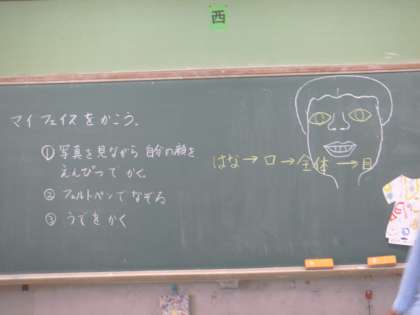 西
マイフェイスをかこう。
①写真を見ながら 自分の顔を
えんぴつで かく。
②フェルトペンでなぞる
③うでをかく
はな→口→全体→目